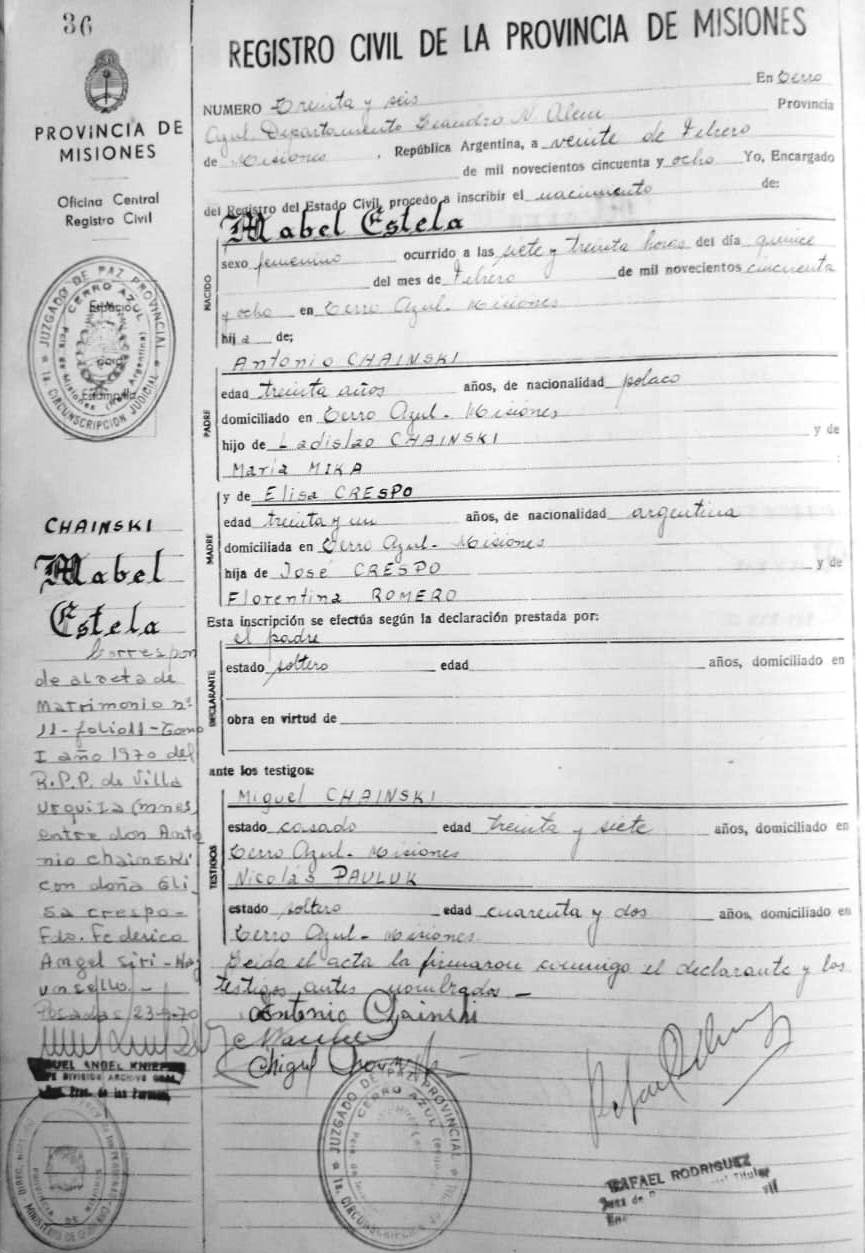 36
PROVINCIA DE
MISIONES
Oficina Central
Registro Civil
JUZGADO DE PAZ PROVINCIAL
CERRO AZUL
1a. CIRCUNSCRIPCION JUDICIAL
Espacio
para
Estampilla
CHAINSKI
Mabel
Estela
Correspon
de al acta de
Matrimonio nº
11-folio11-Tomo
I año 1970 del
R.P.P. de Villa
Urquiza (mnes)
entre don Anto
nio Chainski
con doña Eli
sa crespo-
Fdo. Federico
Angel Siri - Hay
un sello.-
Posadas 23-9-70
MIGUEL ANGEL
DIVISION ARCHIVO GRAL.
REGISTRO CIVIL DE LA PROVINCIA DE MISIONES
NUMERO Treinta y seis En Cerro
Azul. Departamento Leandro N. Alem Provincia
de Misiones, República Argentina, a veinte de Febrero
de mil novecientos cincuenta y ocho Yo, Encargado
del Registro del Estado Civil, procedo a inscribir el nacimiento de:
Mabel Estela
NACIDO
sexo femenino ocurrido a las siete y treinta horas del día quince
del mes de Febrero de mil novecientos cincuenta
y ocho en Cerro Azul. Misiones
hija de;
PADRE
Antonio CHAINSKI
edad treinta años años, de nacionalidad polaco
domiciliado en Cerro Azul. Misiones
hijo de Ladislao CHAINSKI y de
María MIKA
MADRE
y de Elisa CRESPO
edad treinta y un años, de nacionalidad argentina
domiciliada en Cerro Azul. Misiones
hija de José CRESPO y de
Florentina ROMERO
Esta inscripción se efectúa según la declaración prestada por:
DECLARANTE
el padre
estado soltero edad años, domiciliado en
obra en virtud de
ante los testigos:
TESTIGOS
Miguel CHAINSKI
estado casado edad treinta y siete años, domiciliado en
Cerro Azul. Misiones
Nicolás PAULUK
estado soltero edad cuarenta y dos años, domiciliado en
Cerro Azul. Misiones.
Leida el acta la firmaron conmigo el declarante y los
testigos antes nombrados -
Antonio Chainski
JUZGADO DE PAZ PROVINCIAL
CERRO AZUL
1a. CIRCUNSCRIPCION
RAFAEL RODRIGUEZ
Juez de Titular